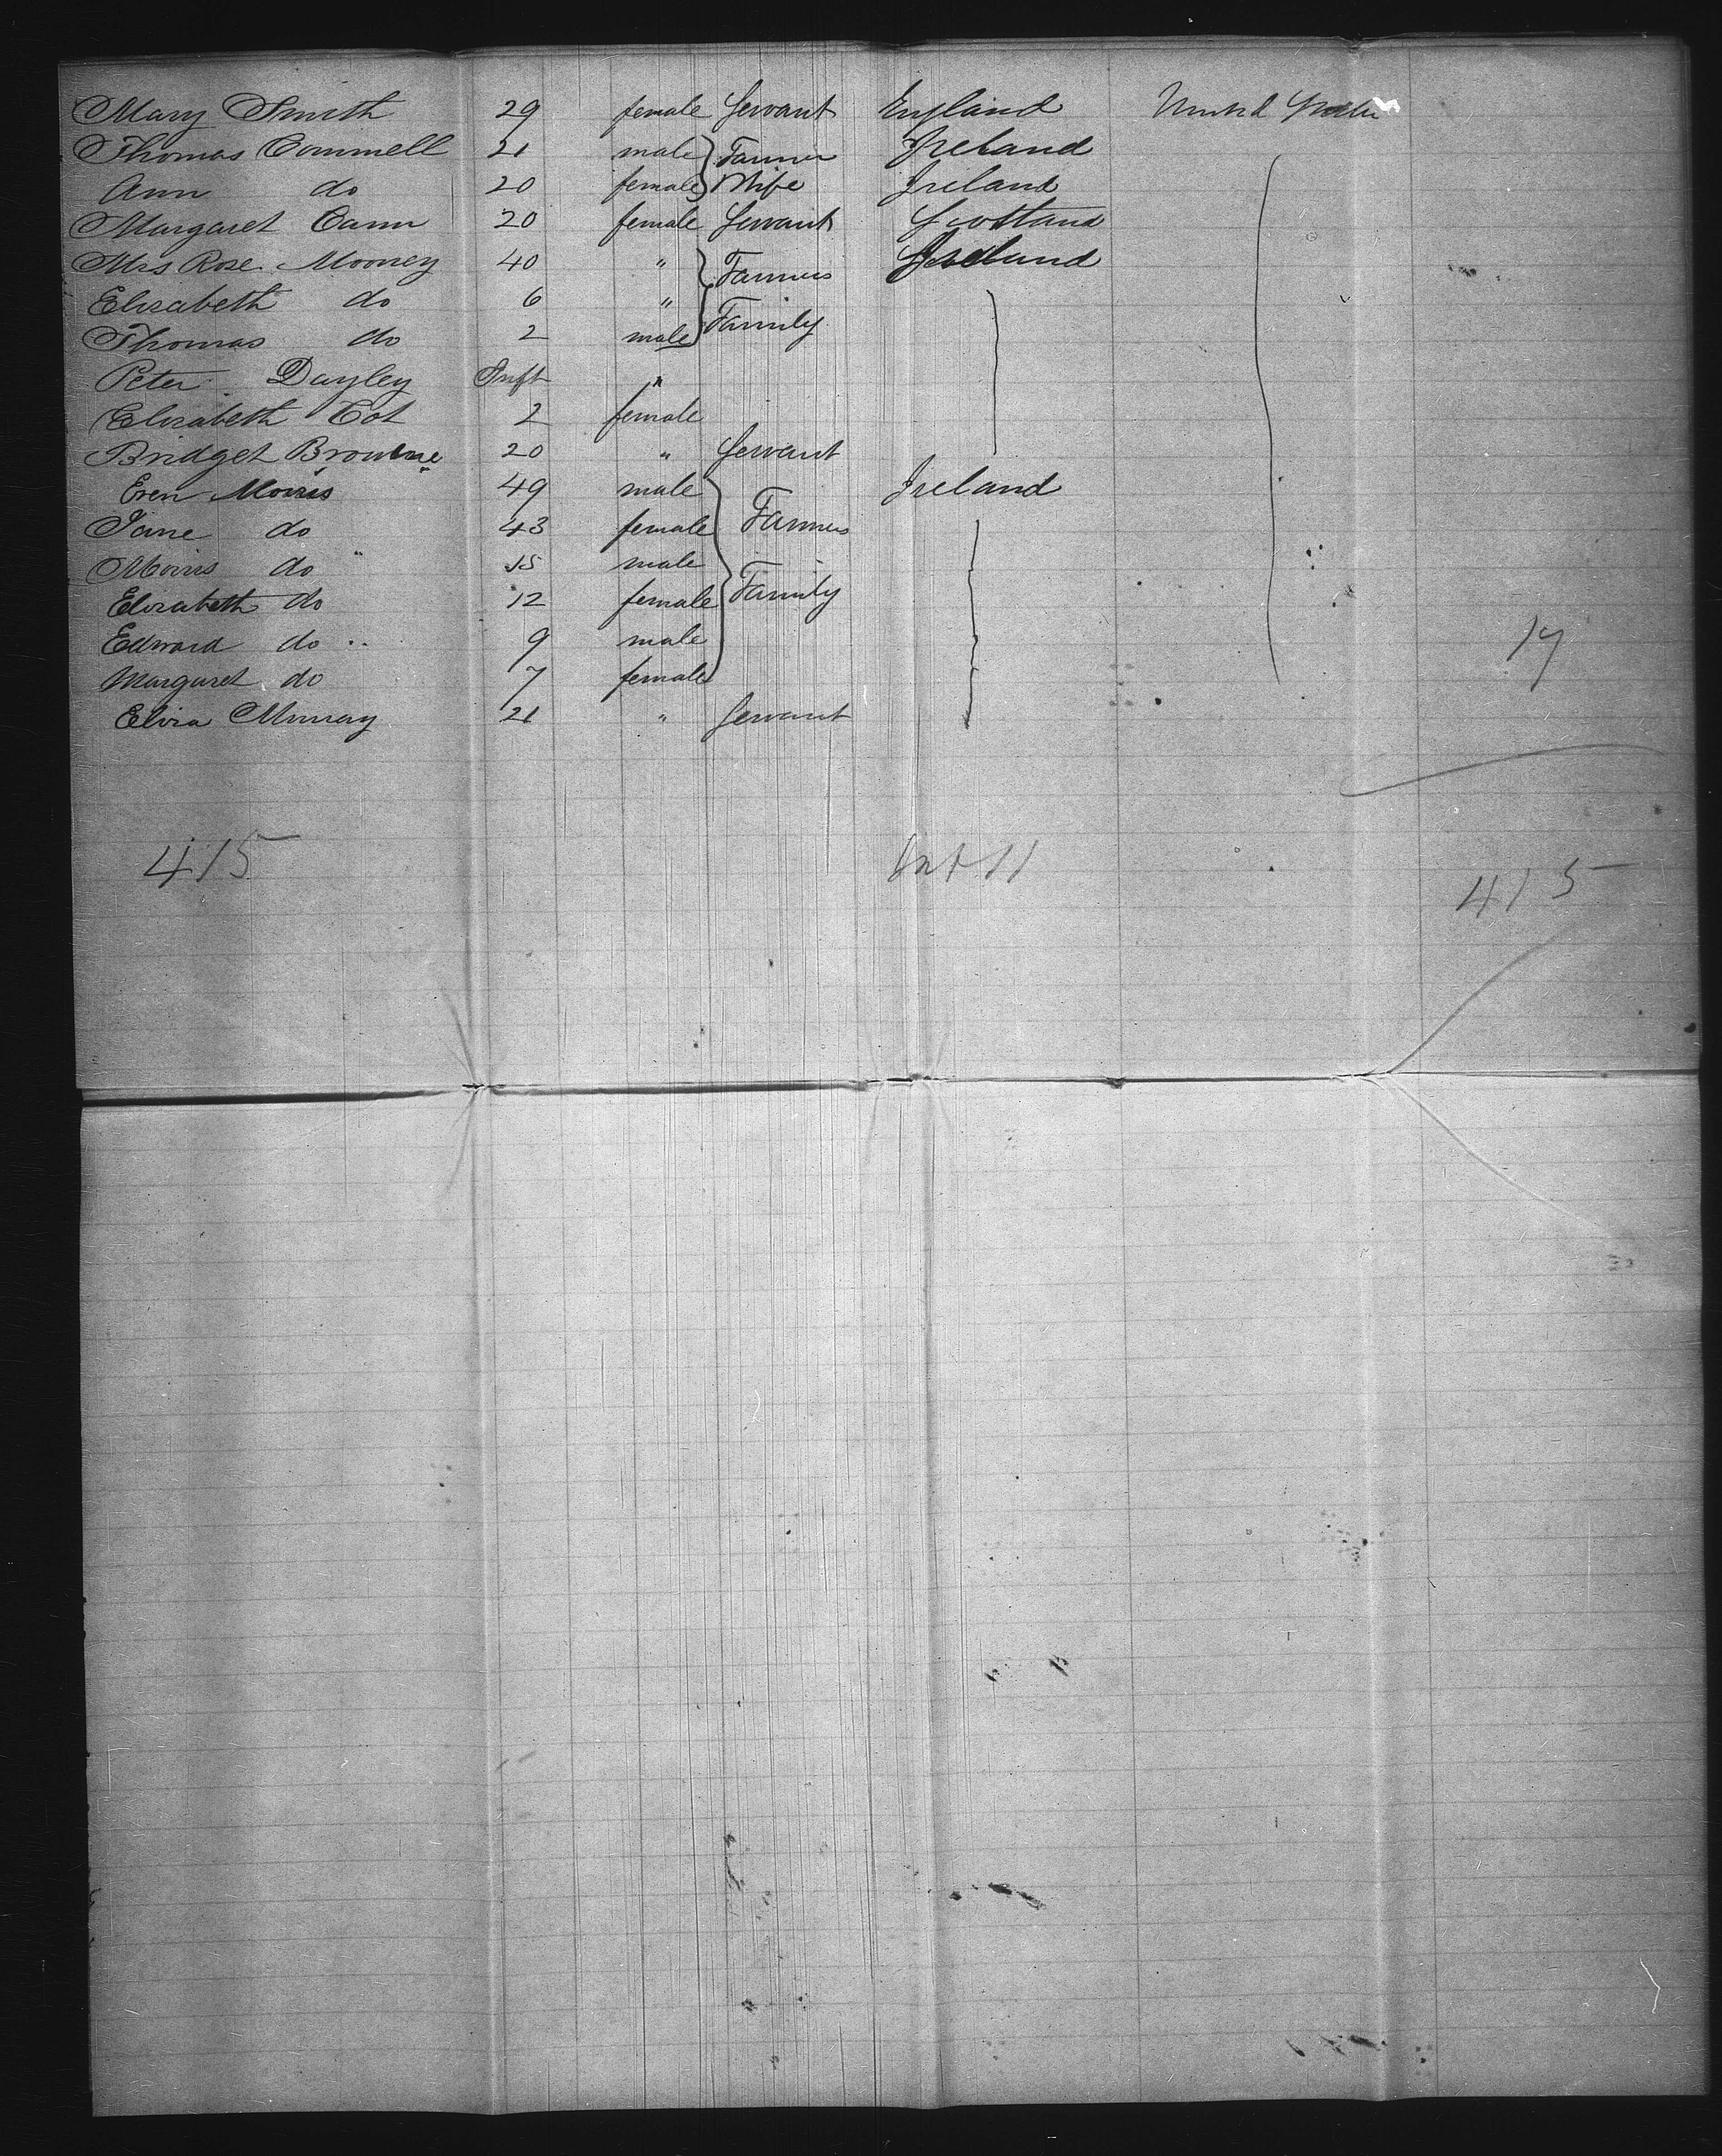 Mary Smith 29 female Servant England United States
Thomas Cammell 21 male Farmer Ireland
Ann do 20 female Wife Ireland
Margaret Cann 20 female Servant Scotland
Mrs Rose Mooney 40 " Farmers Ireland
Elizabeth do 6 "
Thomas do 2 male Family
Peter Dayley Inft "
Elizabeth Cot 2 female
Bridget Browne 20 " Servant
Even Morris 49 male Ireland
Jane do 43 female Farmers
Morris do " 15 male
Elizabeth do 12 female Family
Edward do 9 male
Margaret do 7 female
Eliza Murray 21 " Servant
17
415 Inf 11 415